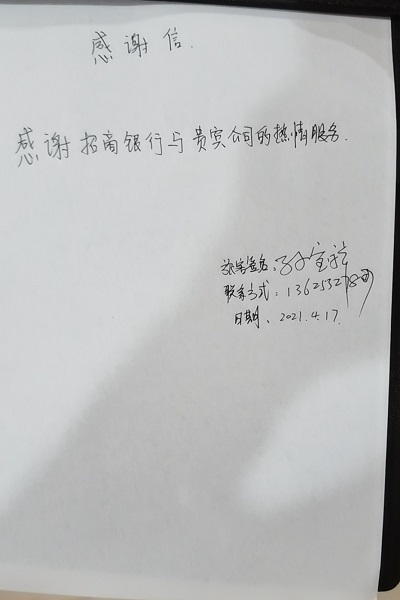 感谢信.
感谢招商银行与贵宾公司的热情服务.
旅客签名:
联系方式: 1362532
日期、2021.4.17.